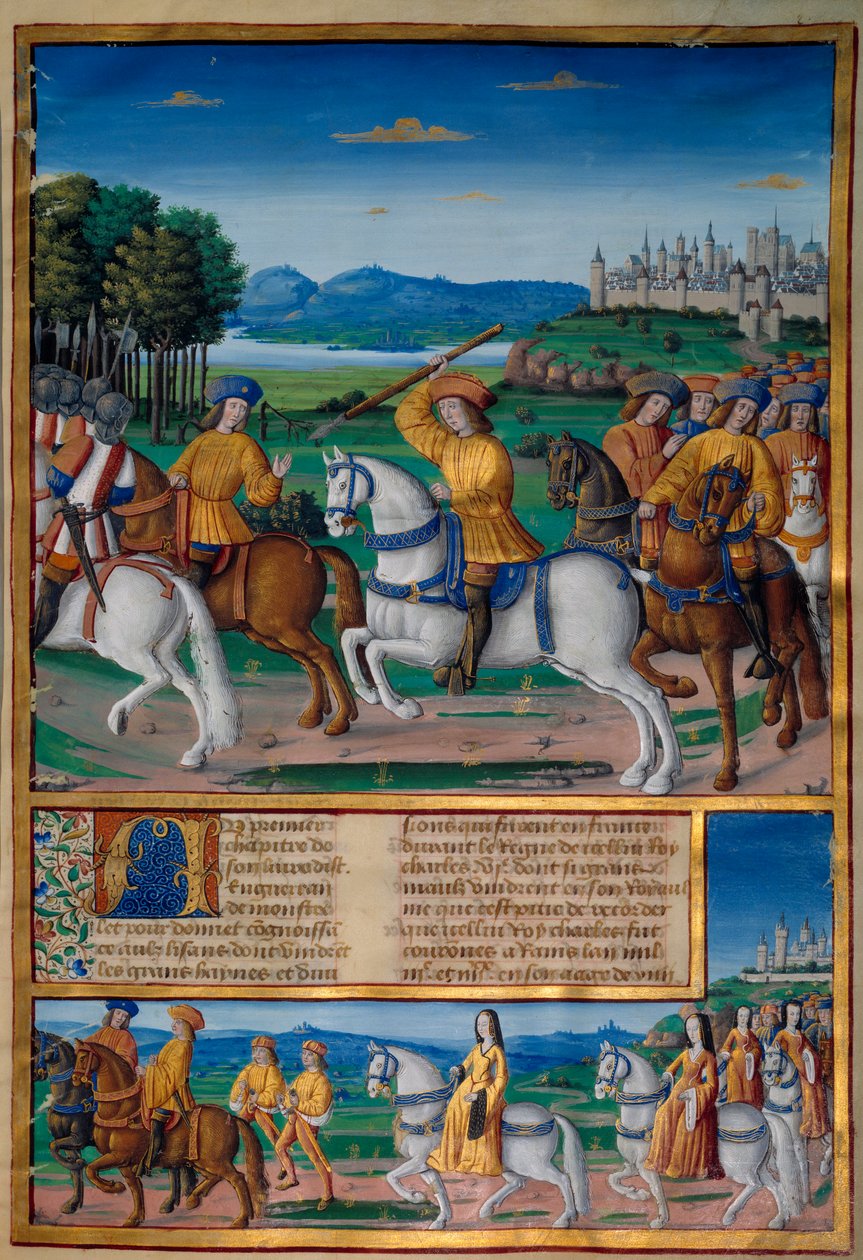 Au premier
chapitre de
son livre dist
Enguerran
de monstre
let pour donner congnoissā
ce aulx lisans dont vindrēt
les grans haynes et divi
sions qui furent en france
durant le regne de icelluy Roy
charles Vjᵉ dont si grans
maulx vindrent en son Royaul
me que cest pitie de recorder
que icelluy Roy charles fut
couronnes a Rains lan mil
et en son aage de